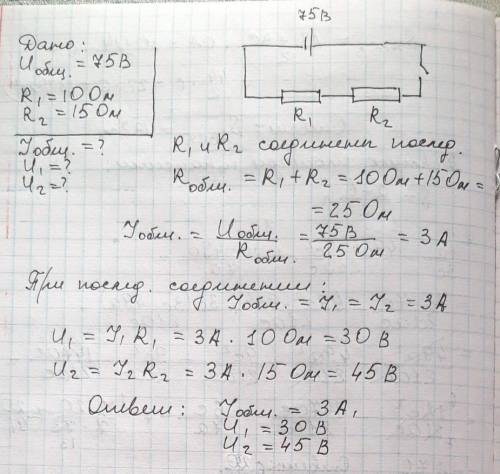 75В
Дано:
Uобщ. = 75В
R₁ = 10 Ом
R₂ = 15 Ом
R₁ R₂
Iобщ. = ?
U₁ = ?
U₂ = ?
R₁ и R₂ соединены послед.
Rобщ. = R₁ + R₂ = 10 Ом + 15 Ом =
= 25 Ом
Iобщ. = Uобщ. / Rобщ. = 75 В / 25 Ом = 3 А
При послед. соединении:
Iобщ. = I₁ = I₂ = 3А
U₁ = I₁ R₁ = 3А · 10 Ом = 30 В
U₂ = I₂ R₂ = 3А · 15 Ом = 45 В
Ответ: Iобщ. = 3А,
U₁ = 30 В
U₂ = 45 В